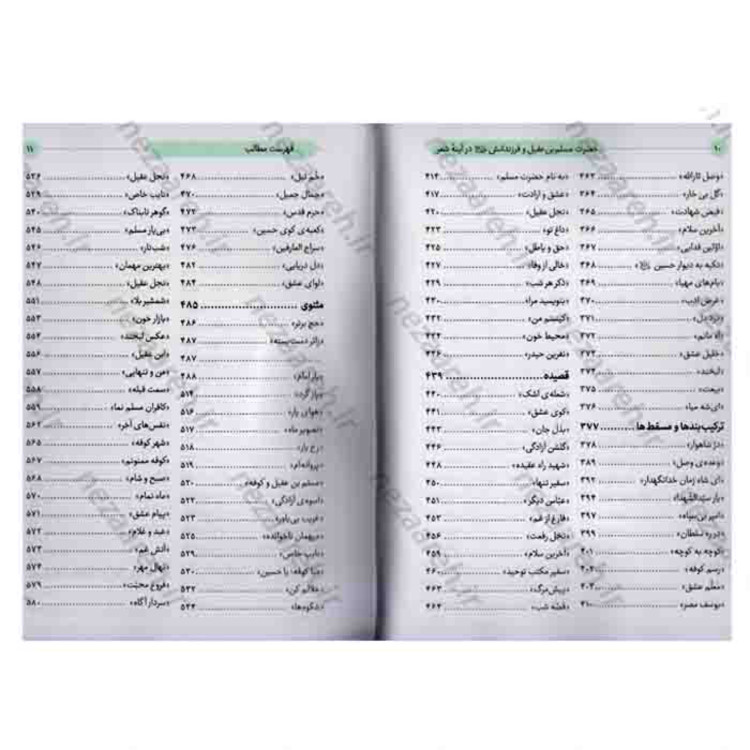 ۱۰ حضرت مسلم‌بن عقیل و فرزندانش در آینهٔ شعر
«وصل ثارالله» ۳۶۲
«گل بی خار» ۳۶۴
«فیض شهادت» ۳۶۵
«آخرین سلام» ۳۶۶
«اوّلین فدایی» ۳۶۷
«تکیه به دیوار حسین» ۳۶۸
«بام‌های مهیا» ۳۶۹
«عرض ادب» ۳۷۰
«درد دل» ۳۷۱
«راه ماتم» ۳۷۲
«خلیل عشق» ۳۷۳
«لبخند» ۳۷۴
«بیعت» ۳۷۵
«ای شه میا» ۳۷۶
ترکیب‌بندها و مسمّط‌ها ۳۷۷
«درّ شاهوار» ۳۷۸
«وعده‌ی وصل» ۳۸۹
«ای شاه زمان خدانگهدار» ۳۹۲
«یار سیّدالشهدا» ۳۹۴
«امیر بی‌سپاه» ۳۹۷
«دُرد سلطان» ۳۹۹
«کوچه به کوچه» ۴۰۱
«رسم کوفه» ۴۰۴
«معلّم عشق» ۴۰۷
«یوسف مصر» ۴۱۰
«به نام حضرت مسلم» ۴۱۴
«عشق و ارادت» ۴۱۷
«نجل عقیل» ۴۲۰
«داغ تو» ۴۲۳
«حق و باطل» ۴۲۵
«خالی از وفا» ۴۲۷
«ذکر هر شب» ۴۲۹
«بنویسید مرا» ۴۳۰
«کیستم من» ۴۳۲
«محیط خون» ۴۳۴
«نفرین حیدر» ۴۳۶
قصیده ۴۳۹
«شعله‌ی اشک» ۴۴۰
«کوی عشق» ۴۴۱
«بذل جان» ۴۴۲
«گلشن آزادگی» ۴۴۶
«شهید راه عقیده» ۴۴۸
«سفیر تنها» ۴۵۰
«عبّاس دیگر» ۴۵۱
«فارغ از غم» ۴۵۳
«نخل رفعت» ۴۵۶
«آخرین سلام» ۴۵۹
«سفیر مکتب توحید» ۴۶۰
«پیش‌مرگ» ۴۶۳
«قصّه شب» ۴۶۴
فهرست مطالب ۱۱
«خُم نیل» ۴۶۸
«جمال جمیل» ۴۷۰
«حرم قدس» ۴۷۲
«کعبه‌ی کوی حسین» ۴۷۳
«سراج العارفین» ۴۷۶
«دل دریایی» ۴۸۲
«لوای عشق» ۴۸۴
مثنوی ۴۸۵
«حج برتر» ۴۸۶
«زائر دست‌بسته» ۴۸۷
۴۸۷
«یار امام» ۴۸۸
«باز گرد» ۵۱۴
«هوای یار» ۵۱۶
«تصویر ماه» ۵۱۷
«رخ یار» ۵۱۸
«پروانه‌ام» ۵۱۹
«مسلم بن عقیل و کوفه» ۵۲۰
«اسوه‌ی آزادگی» ۵۲۲
«غریب بی‌یاور» ۵۲۳
«میهمان ناخوانده» ۵۲۵
«نایب خاص» ۵۲۹
«میا کوفه؛ یا حسین» ۵۳۰
«حلالم کن» ۵۳۲
«شکوه‌ها» ۵۳۴
«نجل عقیل» ۵۳۶
«نایب خاص» ۵۳۹
«گوهر تابناک» ۵۴۰
«بی‌یار مسلم» ۵۴۵
«شب تار» ۵۴۶
«بهترین مهمان» ۵۴۷
«نجل عقیل» ۵۴۸
«شمشیر بلا» ۵۵۱
«بازار خون» ۵۵۳
«عکس لبخند» ۵۵۴
«ابن عقیل» ۵۵۶
«من و تنهایی» ۵۵۷
«سمت قبله» ۵۵۸
«کافران مسلم نما» ۵۵۹
«نفس‌های آخر» ۵۶۲
«شهر کوفه» ۵۶۵
«کوفه ممنونم» ۵۶۷
«صبح و شام» ۵۶۸
«ماه تمام» ۵۷۰
«پیام عشق» ۵۷۱
«عبد و غلام» ۵۷۲
«آتش غم» ۵۷۳
«نهال مهر» ۵۷۴
«فروغ محبّت» ۵۷۹
«سردار آگاه» ۵۸۰
nezaareh.ir